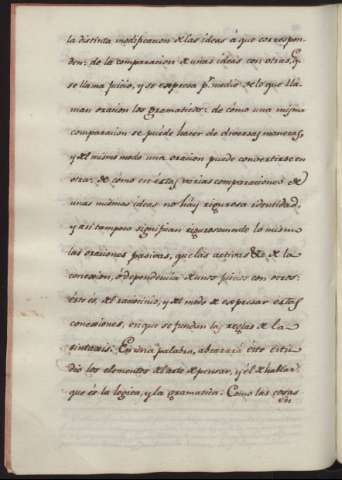 la distinta modificacion de las ideas á que correspon-
den: de la comparacion de unas ideas con otras, q.
se llama juicio, y se expresa p.r medio de lo que lla-
man oracion los gramaticos: de cómo una misma
comparacion se puede hacer de diversas maneras,
y del mismo modo una oracion puede convertirse en
otra: de cómo en estas varias comparaciones de
unas mismas ideas no háy rigurosa identidad,
y asi tampoco significan rigurosamente lo mismo
las oraciones pasivas, que las activas &c. de la
conexion, ó dependencia de unos juicios con otros:
ésto és, del raciocinio, y del modo de expresar estas
conexiones, en que se fundan las reglas de la
sintaxis. En una palabra, abrazará éste estu-
dio los elementos del arte de pensar, y el de hablar
que és la logica, y la gramatica. Como las cosas